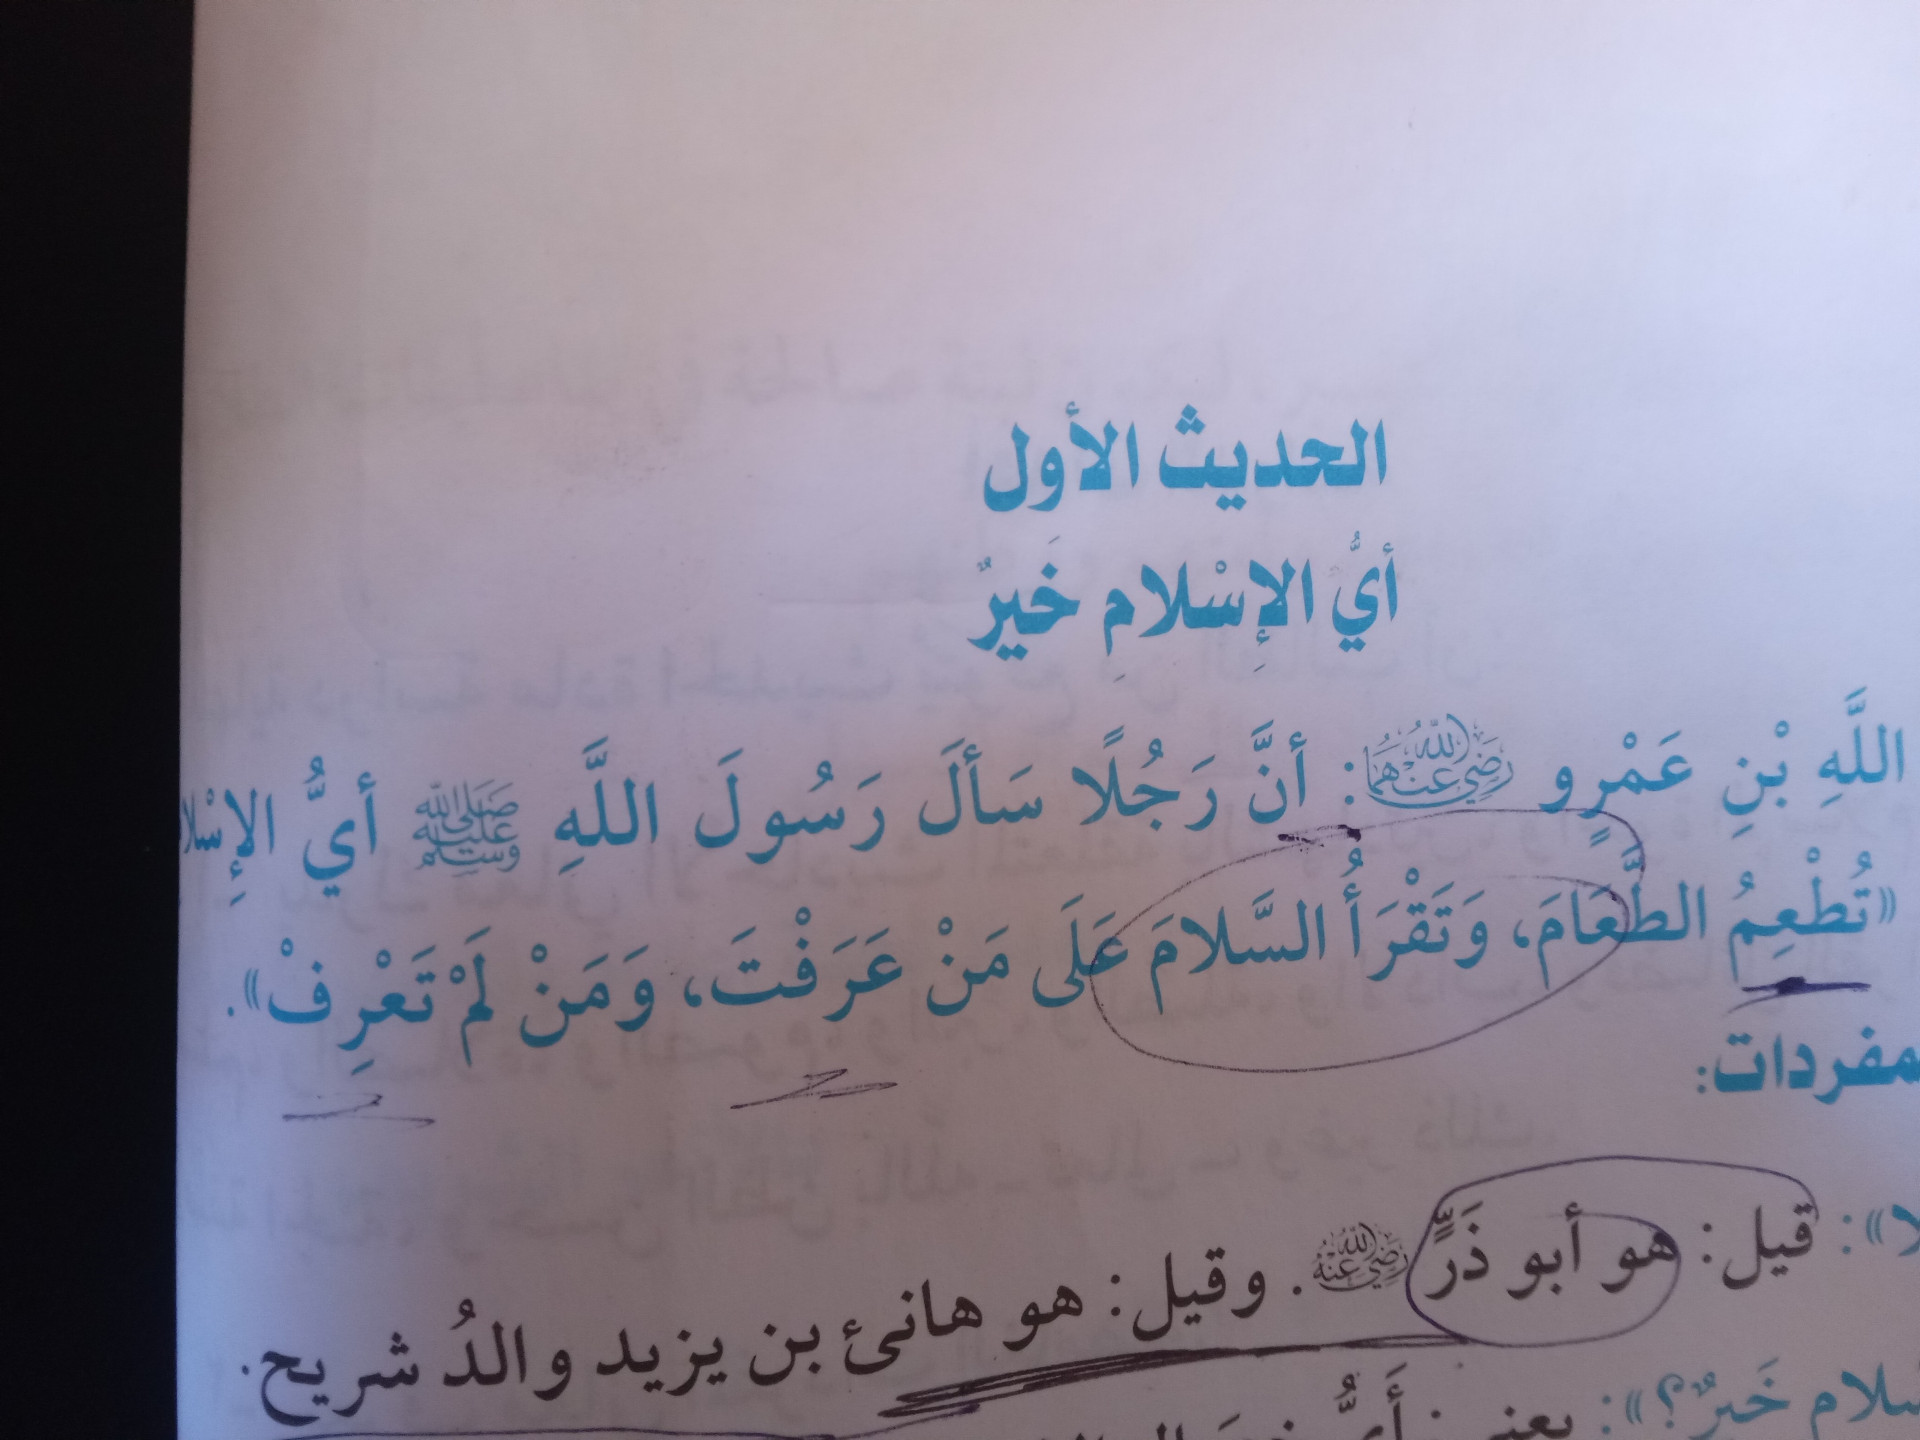 الحديث الأول
أيُّ الإِسْلامِ خَيرٌ
اللَّهِ بْنِ عَمْرٍو رَضِيَ اللهُ عَنْهُمَا: أنَّ رَجُلًا سَألَ رَسُولَ اللَّهِ صَلَّى اللهُ عَلَيْهِ وَسَلَّمَ أيُّ الإِسْلا
«تُطْعِمُ الطَّعَامَ، وَتَقْرَأُ السَّلامَ عَلَى مَنْ عَرَفْتَ، وَمَنْ لَمْ تَعْرِفْ».
مفردات:
لا»: قيل: هو أبو ذَرٍّ رَضِيَ اللهُ عَنْهُ. وقيل: هو هانئ بن يزيد والدُ شريح.
سلام خَيرٌ؟»: يعني: أَيُّ